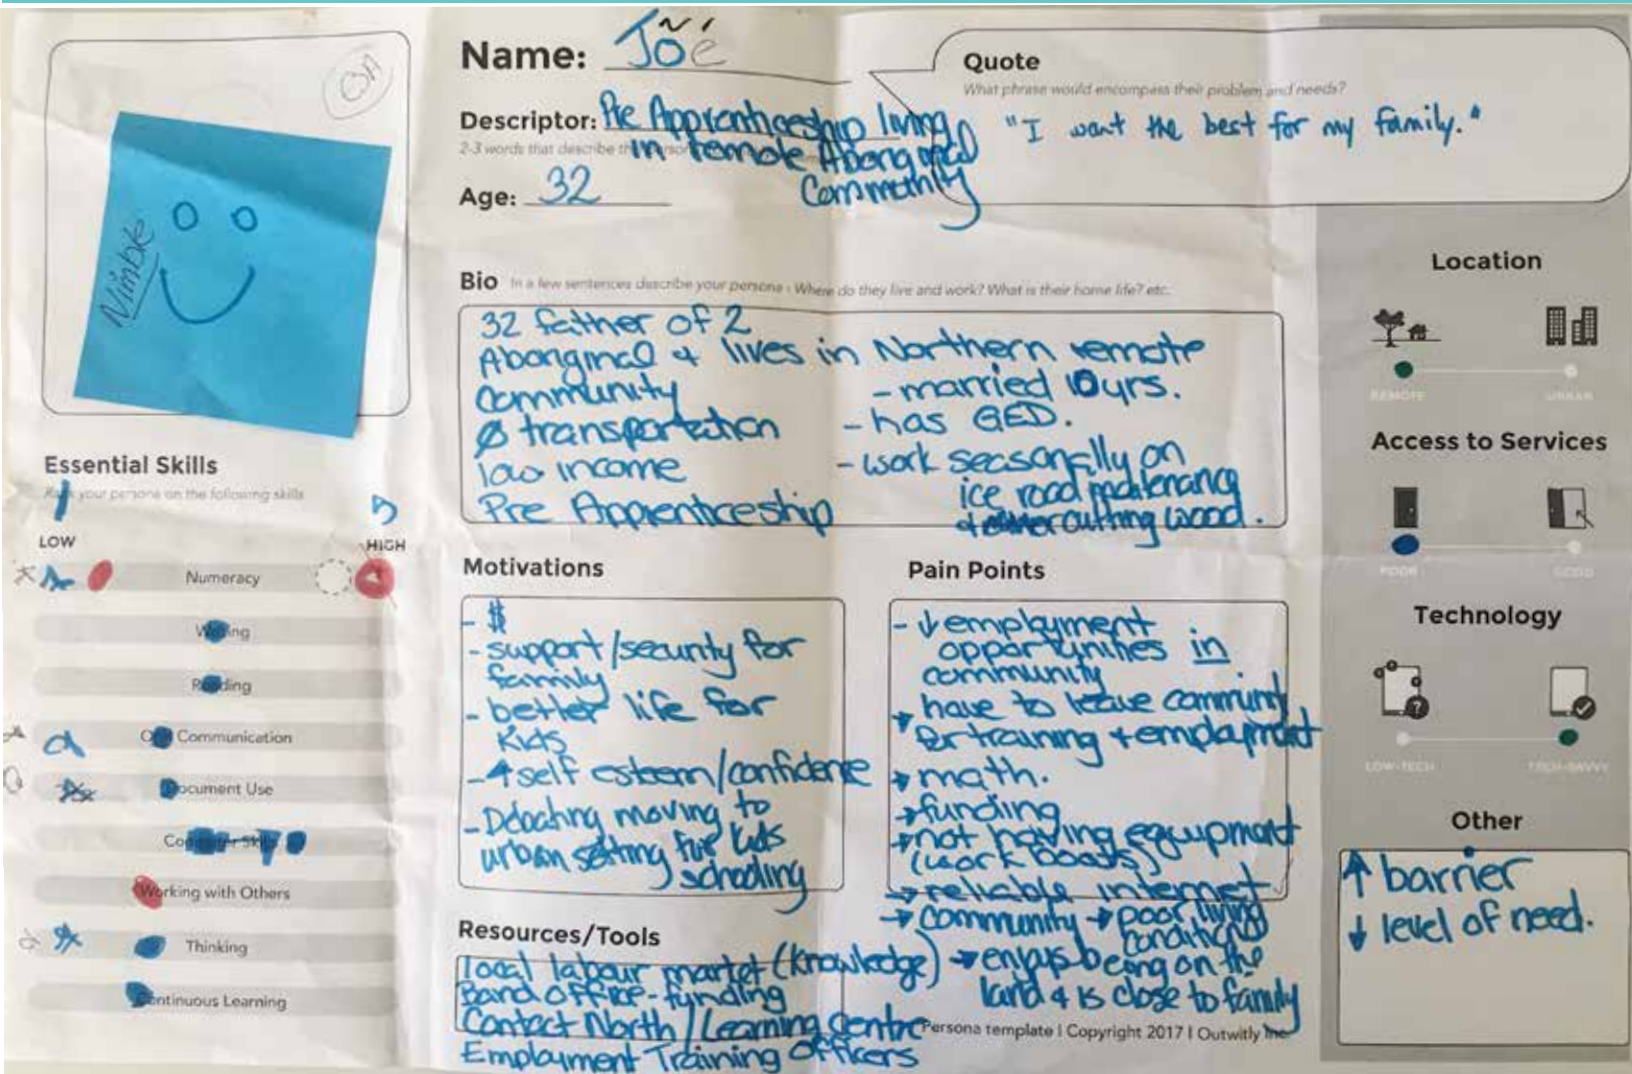 Name: Joe
Descriptor: Pre Apprenticeship living
2-3 words that describe
in remote Aboriginal
Community
Age: 32
Quote
What phrase would encompass their problem and needs?
"I want the best for my family."
Nimble
Bio In a few sentences describe your persona : Where do they live and work? What is their home life? etc.
32 father of 2
Aboriginal & lives in Northern remote
community
Ø transportation
low income
Pre Apprenticeship
- married 10 yrs.
- has GED.
- work seasonally on
ice road
cutting wood.
Essential Skills
your persona on the following skills
1 5
LOW HIGH
Numeracy
Writing
Reading
Communication
Document Use
Computer Skills
Working with Others
Thinking
Continuous Learning
Motivations
- $
- support/security for
family
- better life for
kids
- ↑ self esteem/confidence
- moving to
urban setting for kids
schooling
Pain Points
- ↓ employment
opportunities in
community
→ have to leave community
for training + employment
→ math.
→ funding
→ not having equipment
(work boots)
→ reliable internet
→ community → poor living
conditions
→ enjoys being on the
land & is close to family
Resources/Tools
local labour market (knowledge)
Band office - funding
Contact North / Learning Centre
Employment Training Officers
Persona template | Copyright 2017 | Outwitly Inc
Location
REMOTE URBAN
Access to Services
POOR GOOD
Technology
LOW-TECH TECH-SAVVY
Other
↑ barrier
↓ level of need.